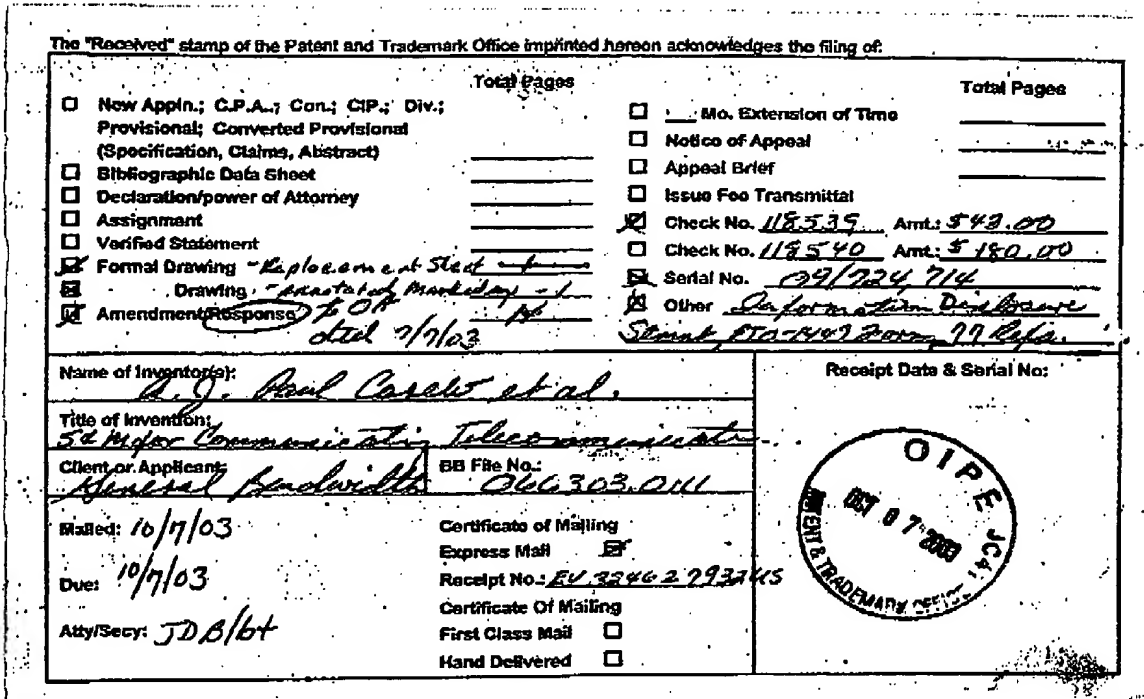 The "Received" stamp of the Patent and Trademark Office imprinted hereon acknowledges the filing of:
Total Pages
New Appln.; C.P.A.; Con.; CIP.; Div.;
Provisional; Converted Provisional
(Specification, Claims, Abstract)
Bibliographic Data Sheet
Declaration/power of Attorney
Assignment
Verified Statement
Formal Drawing - Replacement Sheet - 1
Drawing - Annotated Marked - 1
Amendment/Response to OA
dtd 7/7/03
Total Pages
Mo. Extension of Time
Notice of Appeal
Appeal Brief
Issue Fee Transmittal
Check No. 118539 Amt.: $43.00
Check No. 118540 Amt: $180.00
Serial No. 09/724,714
Other Information Disclosure
PTO-1449 Form, 77 Refs.
Name of Inventor(s):
A.J. Paul et al.
Title of Invention:
Communicating
Client or Applicant:
General Bandwidth
BB File No.:
066303.0111
Mailed: 10/7/03
Due: 10/7/03
Atty/Secy: JDB/bt
Certificate of Mailing
Express Mail
Receipt No.: EV 334627932US
Certificate Of Mailing
First Class Mail
Hand Delivered
Receipt Date & Serial No:
OIPE
OCT 07 2003
& TRADEMARK OFFICE